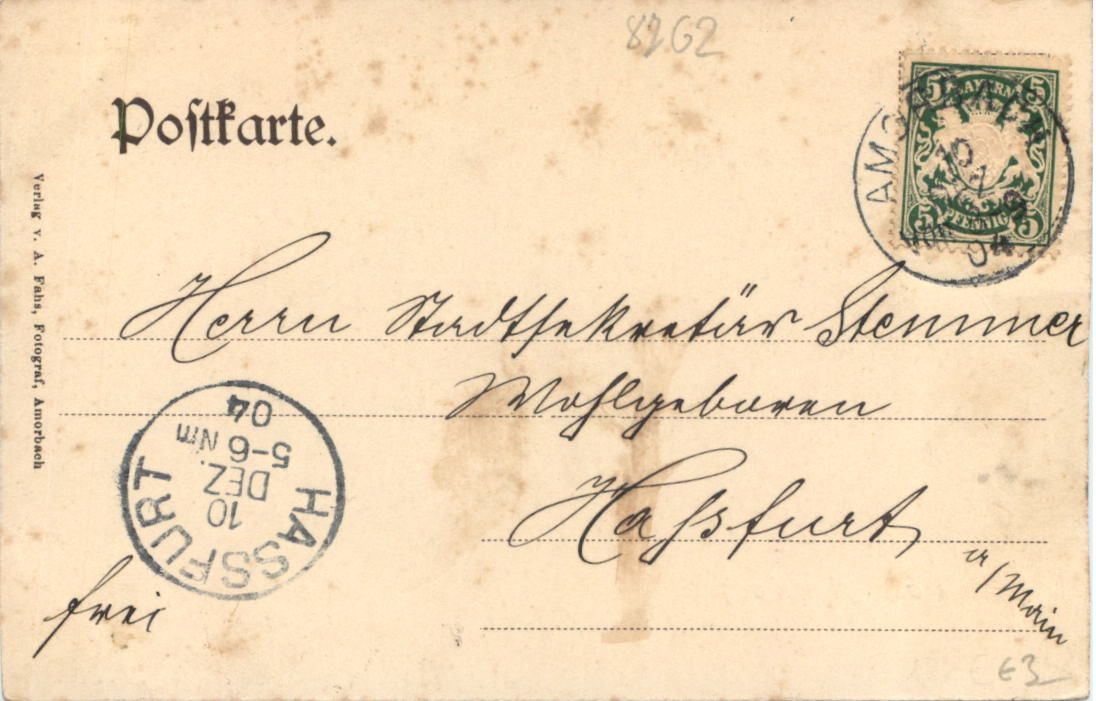 8262
Postkarte.
BAYERN
5 5
PFENNIG
5 5
AMORBACH
10
04
Verlag v. A. Fahs, Fotograf, Amorbach
Herrn Stadtsekretär Stemmer
Wohlgeboren
Haßfurt
a/Main
HASSFURT
10
DEZ.
5-6 Nm
04
frei
€3